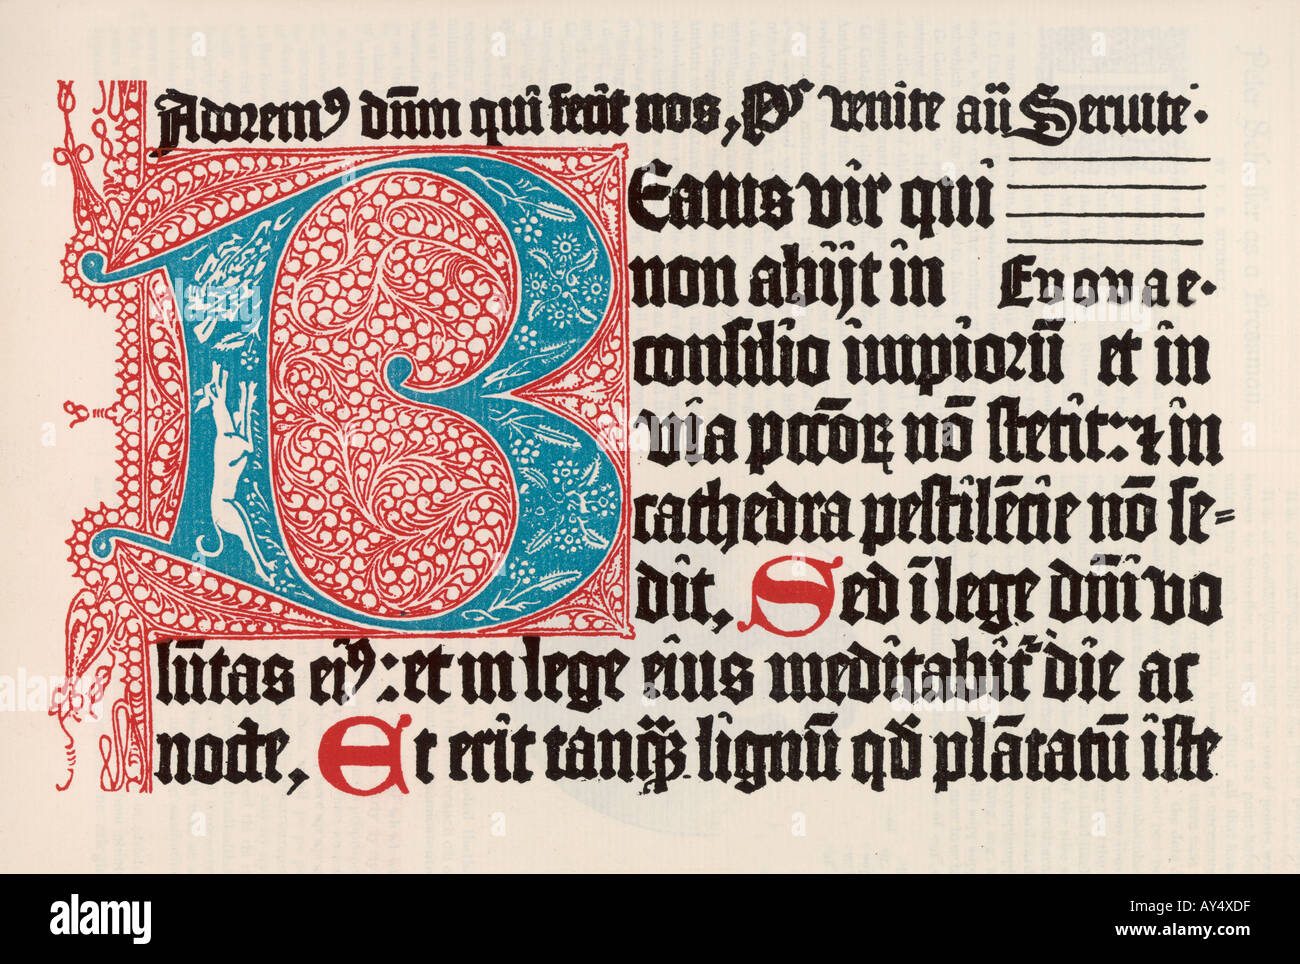 Adorem⁹ dn̄m qui fecit nos, Ps venite añ Seruite.
BEatus vir qui
non abijt in Euouae.
consilio impiorū et in
via pctōꝝ nō stetit: ⁊ in
cathedra pestilēcie nō se=
dit, Sed ī lege dn̄i vo
lūtas ei⁹: et in lege eius meditabit̄ die ac
nocte, Et erit tanqꝫ lignū qd̄ plātatū iste
alamy
Image ID: AY4XDF
www.alamy.com